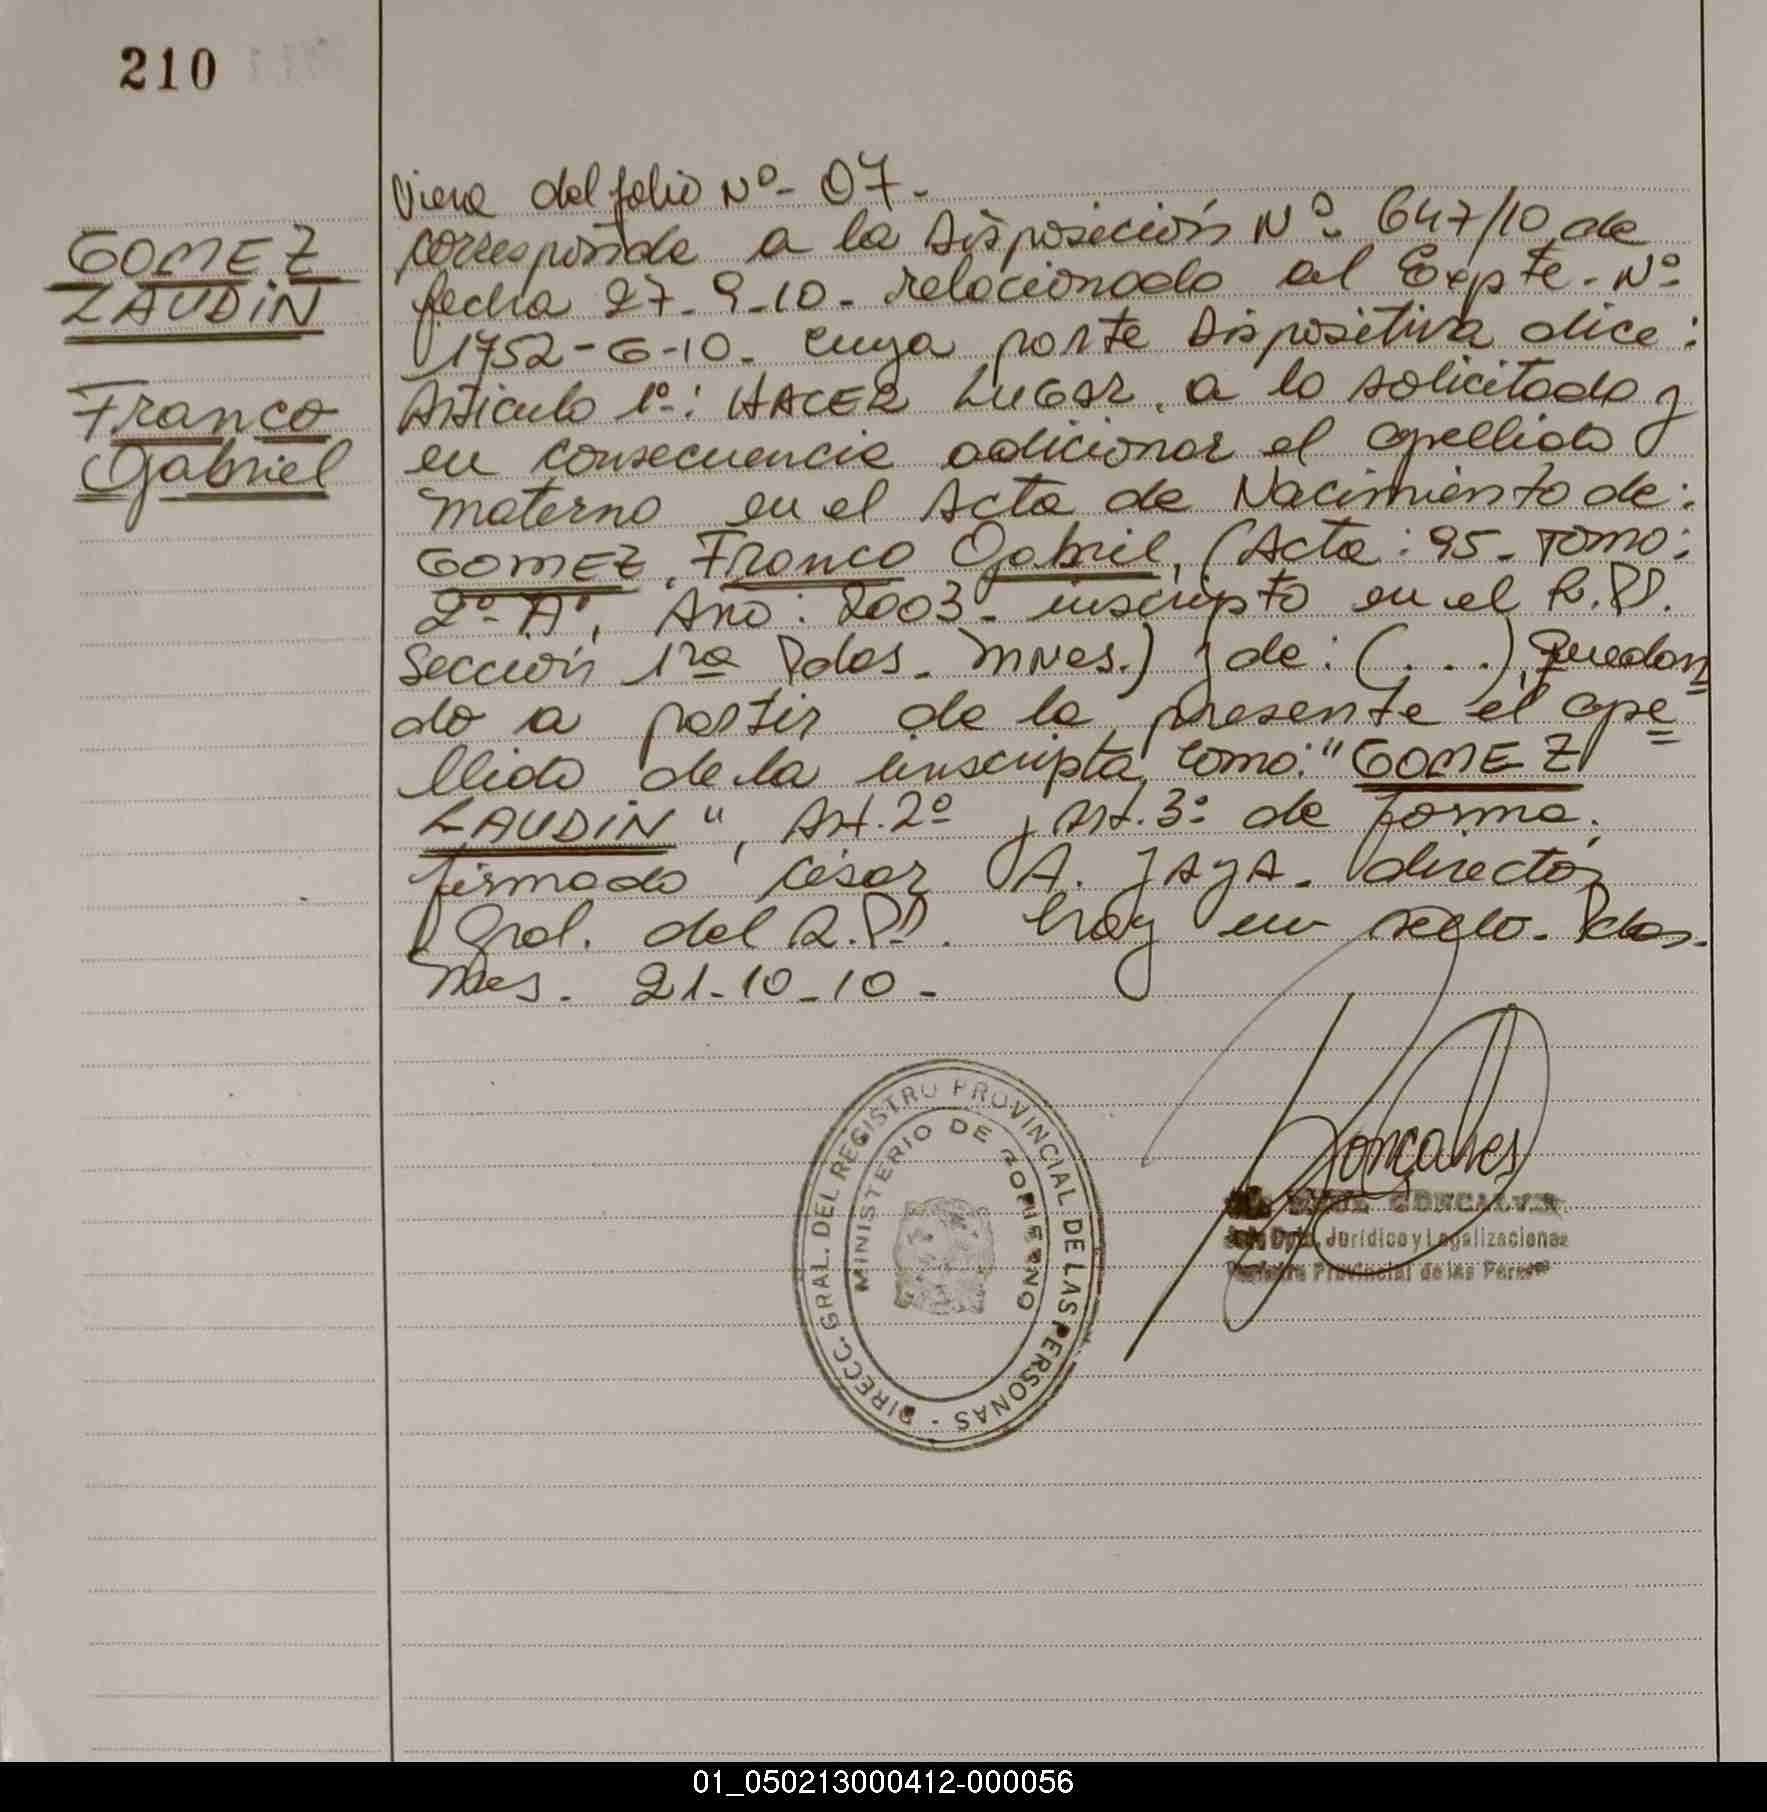 210
GOMEZ
LAUDIN
Franco
Gabriel
Viene del folio Nº- 07.
corresponde a la Disposición Nº- 647/10 de
fecha 27-9-10- relacionado al Expte- Nº
1752-G-10- cuya parte Dispositiva dice:
Articulo 1º: HACER LUGAR a lo solicitado y
en consecuencia adicionar el apellido
materno en el Acta de Nacimiento de:
GOMEZ, Franco Gabriel, (Acta: 95- Tomo:
2º "A", Año: 2003- inscripto en el R.P.P.
Sección 1ra Pdas- Mnes.) y de: (...), quedan
do a partir de la presente el ape
llido de la inscripta como: "GOMEZ
LAUDIN", Art. 2º y Art. 3º de forma.
firmado César A. JAYA- director
Gral. del R.P.P. hay un sello- Pdas.
Mnes. 21-10-10-
DIRECC. GRAL. DEL REGISTRO PROVINCIAL DE LAS PERSONAS -
MINISTERIO DE GOBIERNO
Goncalves
GONCALVES
Jefe Dpto. Jurídico y Legalizaciones
Registro Provincial de las Personas
01_050213000412-000056